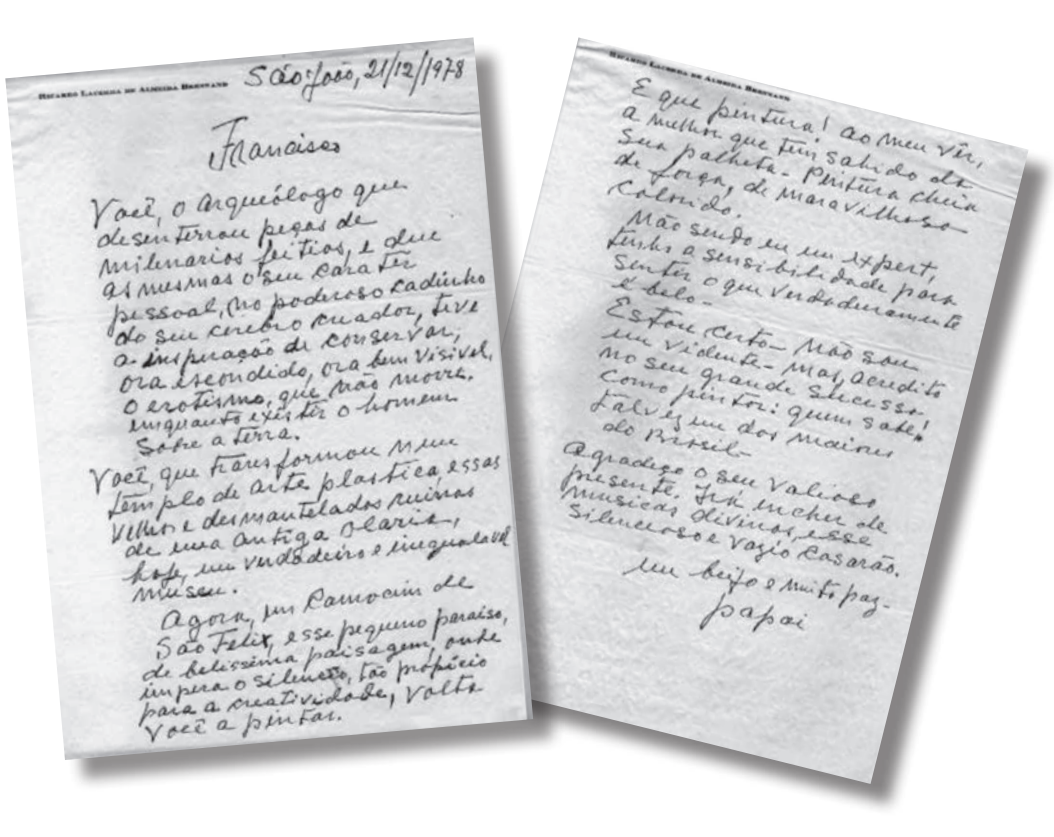 RICARDO LACERDA DE ALMEIDA BRENNAND
São João, 21/12/1978
Francisco
Você, o Arqueólogo que
desenterrou peças de
milenarios feitios, e que
as mesmas o seu carater
pessoal, no poderoso cadinho
do seu cerebro criador, teve
a inspiração de conservar,
ora escondido, ora bem visivel,
o erotismo, que não morre,
enquanto existir o homem
sobre a terra.
Você, que transformou num
templo de arte plastica, essas
velhas e desmanteladas ruinas
de uma antiga olaria,
hoje, um verdadeiro e inegualavel
museu.
Agora, em Camocim de
São Felix, esse pequeno paraiso,
de belissima paisagem, onde
impera o silencio, tão propicio
para a creatividade, volta
você a pintar.
RICARDO LACERDA DE ALMEIDA BRENNAND
E que pintura! ao meu vêr,
a melhor que tem sahido da
sua palheta. Pintura cheia
de força, de maravilhoso
colorido.
Não sendo eu um expert,
tenho a sensibilidade para
sentir o que verdadeiramente
é belo-
Estou certo- Não sou
um vidente- mas, acredito
no seu grande sucesso
como pintor: quem sabe!
talvez um dos maiores
do Brasil-
Agradeço o seu valioso
presente. Irá encher de
musicas divinas, esse
silencioso e vazio casarão.
um beijo e muita paz-
papai